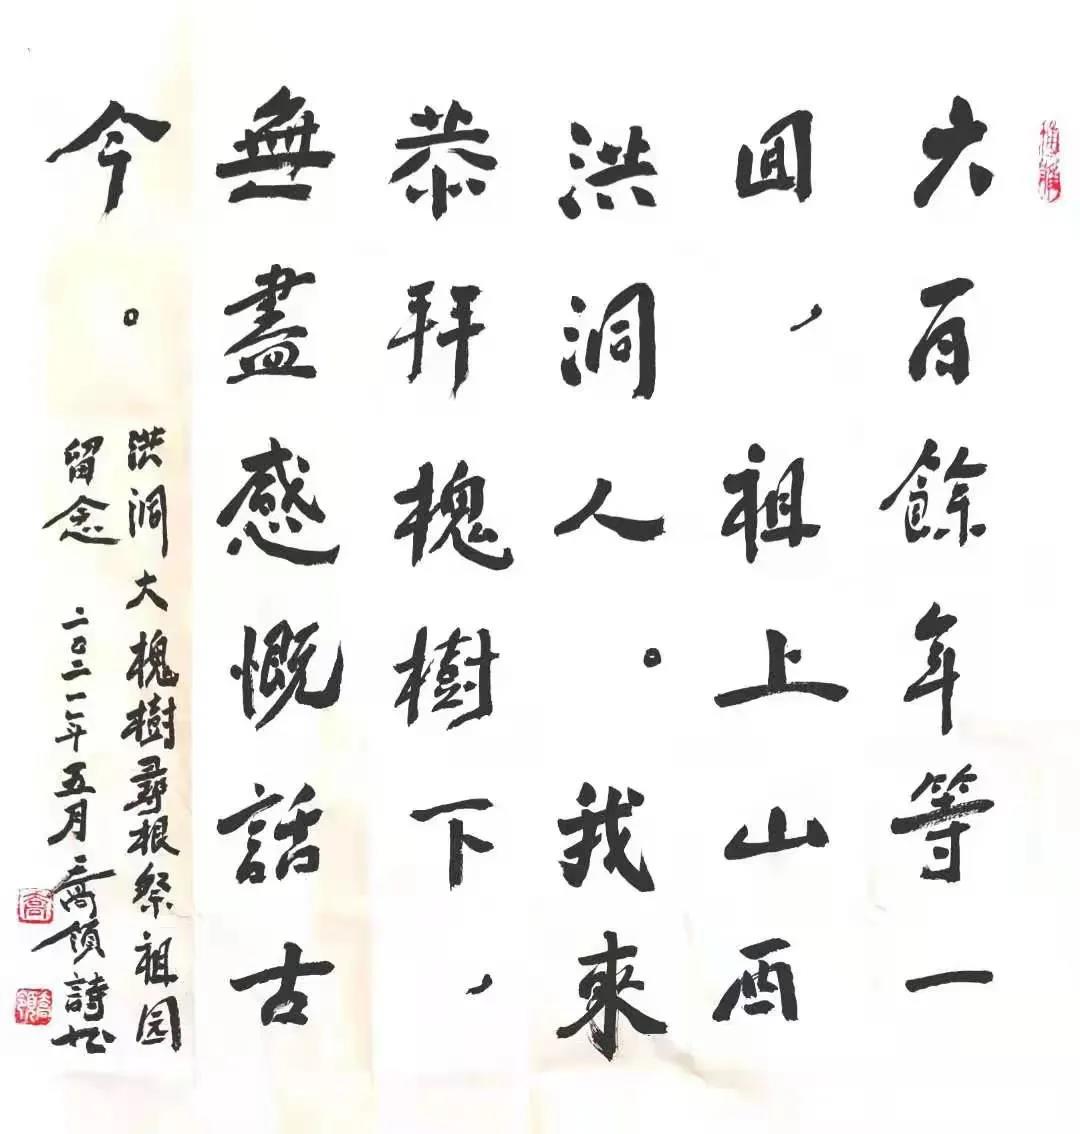 六百餘年等一
囬，祖上山西
洪洞人。我來
恭拜槐樹下，
無盡感慨話古
今。
洪洞大槐樹尋根祭祖园
留念 二〇二一年五月喬領詩书
喬
喬領